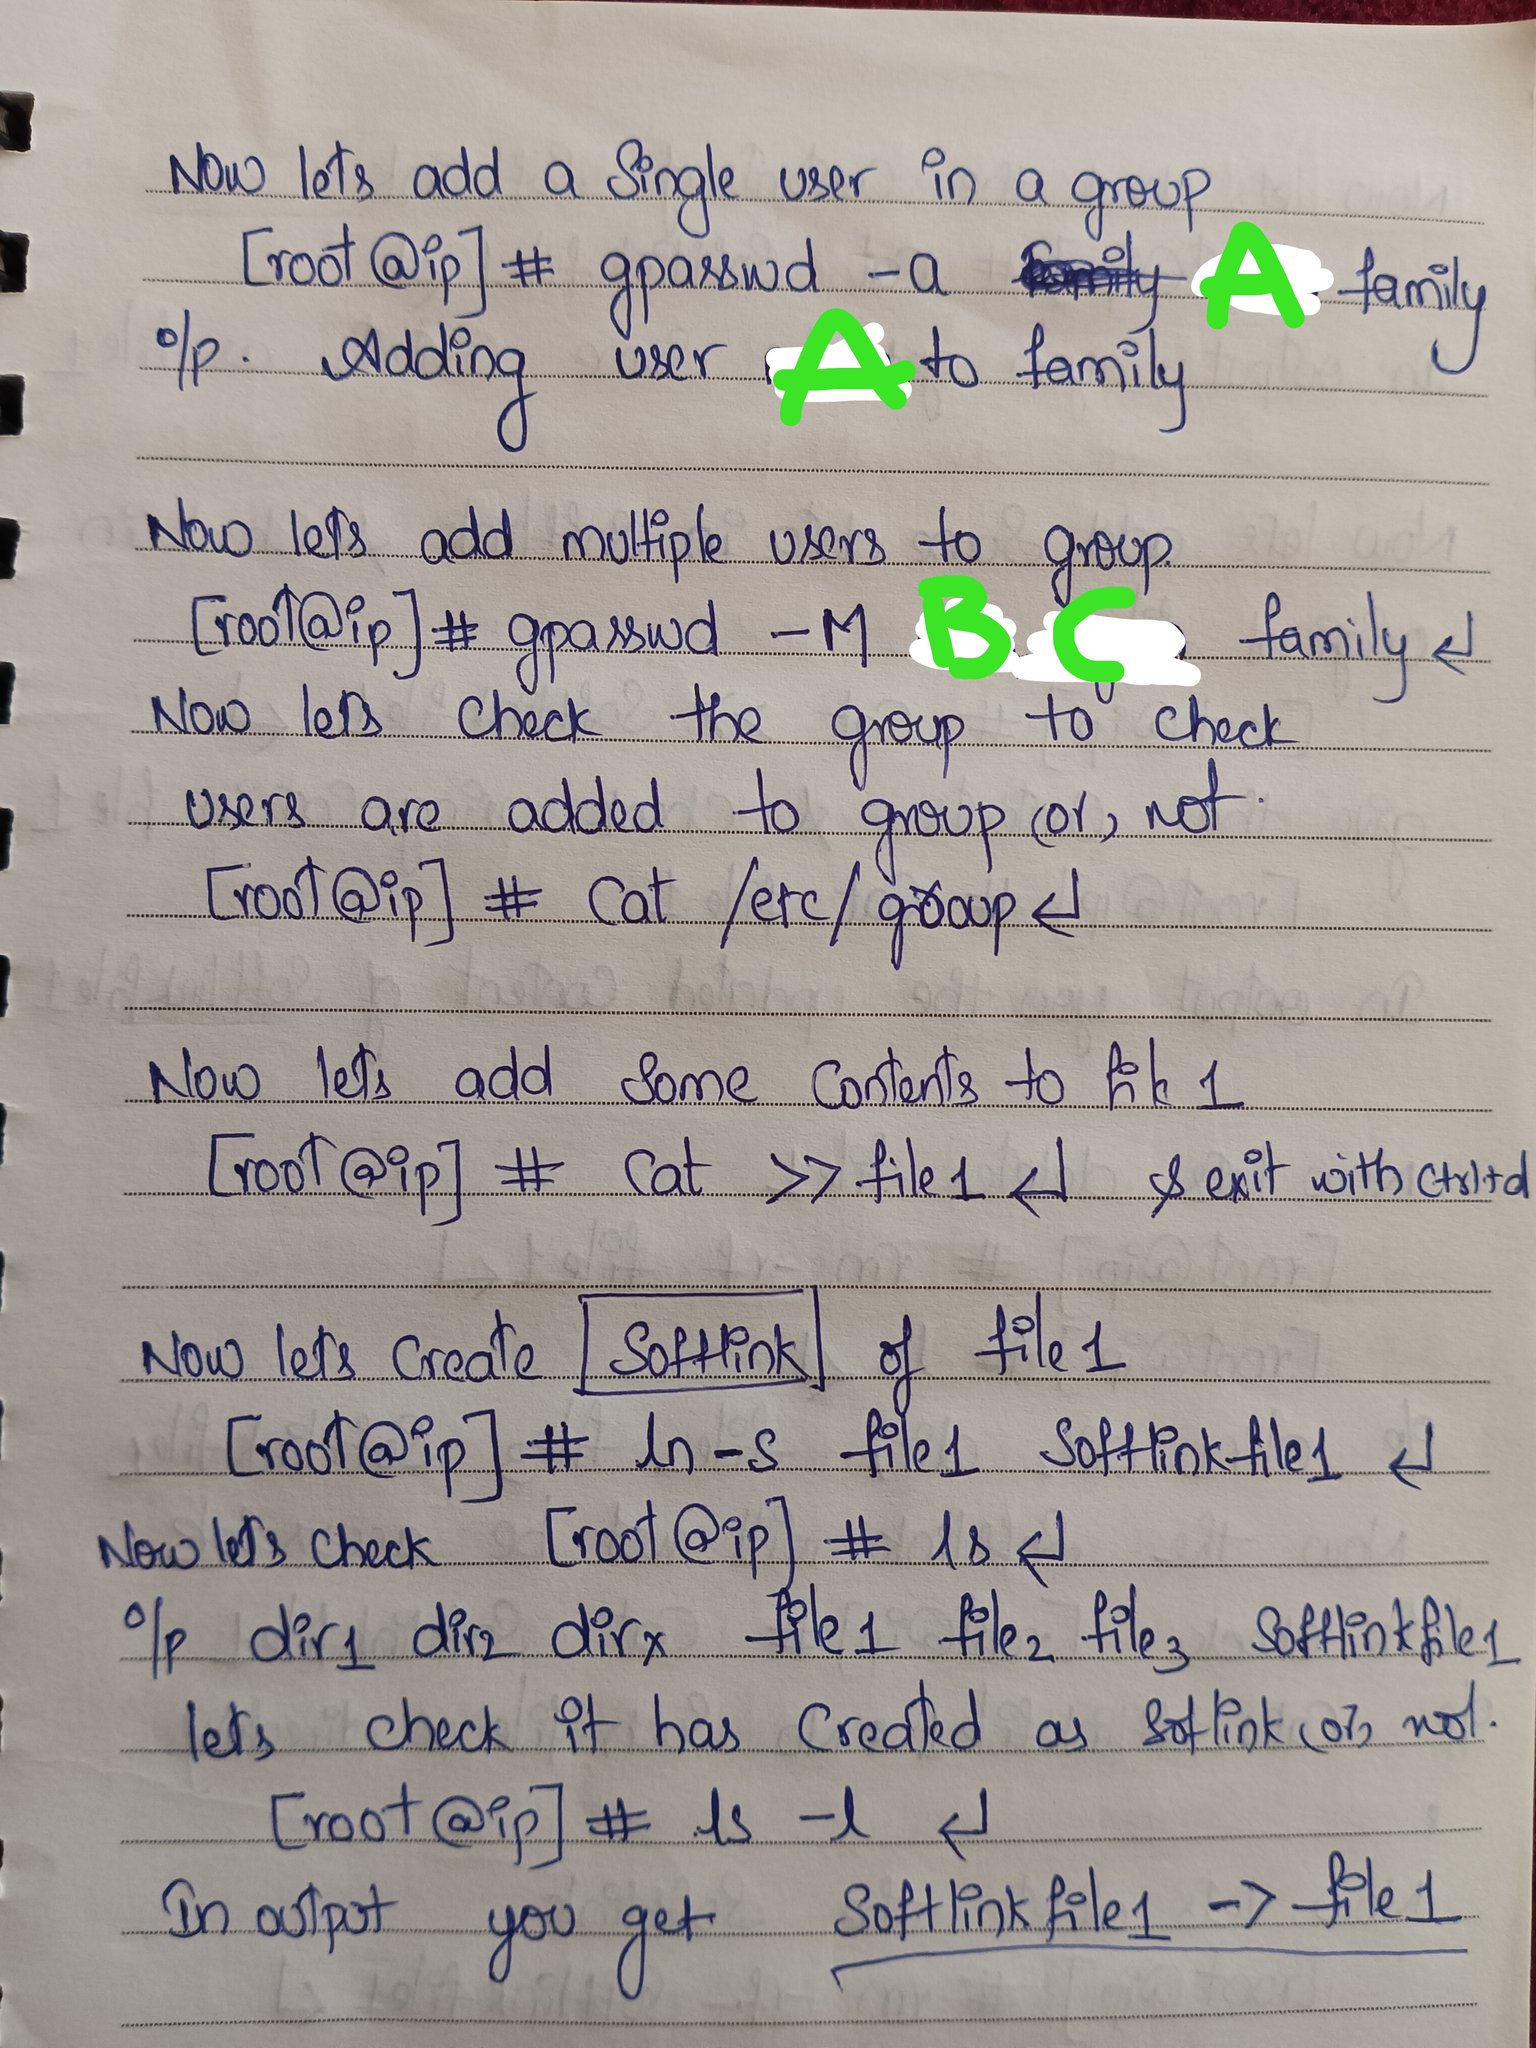 Now lets add a single user in a group
[root@ip] # gpasswd -a family A family
o/p. Adding user A to family
Now lets add multiple users to group.
[root@ip] # gpasswd -M B C family ↵
Now lets check the group to check
users are added to group (or) not.
[root@ip] # cat /etc/group ↵
Now lets add some contents to file 1
[root@ip] # cat >> file1 ↵ & exit with ctrl+d
Now lets create Softlink of file1
[root@ip] # ln -s file1 softlinkfile1 ↵
Now lets check [root@ip] # ls ↵
o/p dir1 dir2 dirx file1 file2 file3 softlinkfile1
lets check it has created as softlink (or) not.
[root@ip] # ls -l ↵
In output you get softlinkfile1 -> file1